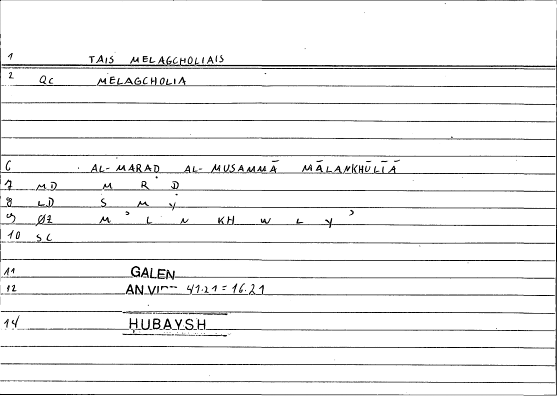 1 TAIS MELAGCHOLIAIS
2 QC MELAGCHOLIA
6 AL-MARAD AL-MUSAMMĀ MĀLANKHŪLĪĀ
7 MD M R Ḍ
8 LD S M Y
9 ØZ M ʾ L N KH W L Y ʾ
10 SC
11 GALEN
12 AN VI 41.21 = 16.21
14 ḤUBAYSH